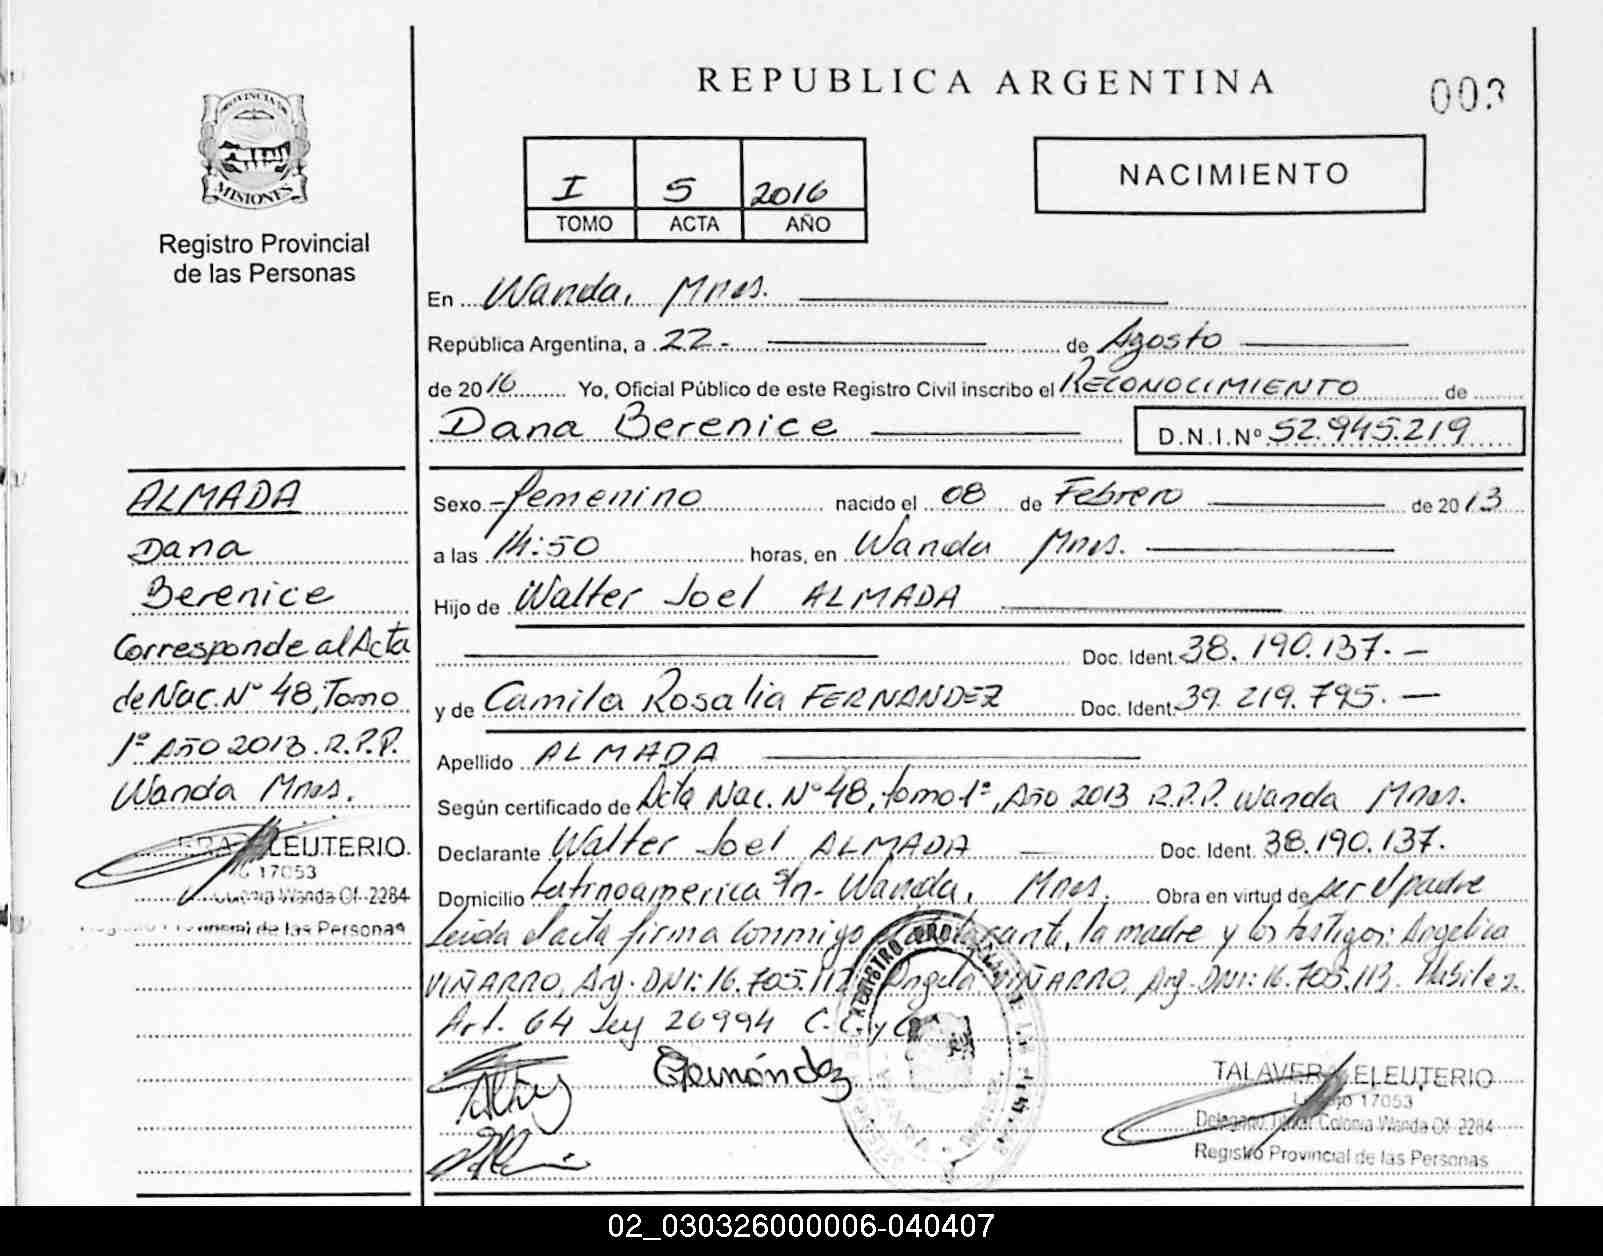 REPUBLICA ARGENTINA
003
PROVINCIA
MISIONES
Registro Provincial
de las Personas
I 5 2016
TOMO ACTA AÑO
NACIMIENTO
En Wanda, Mnes.
República Argentina, a 22- de Agosto
de 2016 Yo, Oficial Público de este Registro Civil inscribo el RECONOCIMIENTO de
Dana Berenice D.N.I.Nº 52.945.219
Sexo femenino nacido el 08 de Febrero de 2013
a las 14:50 horas, en Wanda Mnes.
Hijo de Walter Joel ALMADA
Doc. Ident. 38.190.137.-
y de Camila Rosalia FERNANDEZ Doc. Ident. 39.219.795.-
Apellido ALMADA
Según certificado de Acta Nac. Nº 48, tomo 1º, Año 2013 R.P.P. Wanda Mnes.
Declarante Walter Joel ALMADA Doc. Ident. 38.190.137.
Domicilio Latinoamerica s/n- Wanda, Mnes. Obra en virtud de ser el padre
Leida el acta firma conmigo el declarante, la madre y los testigos: Angelica
VIÑARRO, Arg. DNI: 16.705.112 Angela VIÑARRO, Arg. DNI: 16.705.113.
Art. 64 Ley 26994 C.C. y C.
Fernández
TALAVERA ELEUTERIO
Legajo 17053
Delegado Titular Colonia Wanda Of. 2284
Registro Provincial de las Personas
ALMADA
Dana
Berenice
Corresponde al Acta
de Nac. Nº 48, Tomo
1º Año 2013 R.P.P.
Wanda Mnes.
ELEUTERIO
17053
Colonia Wanda Of. 2284
Provincial de las Personas
02_030326000006-040407